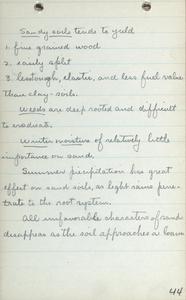 Sandy soils tends to yield
1. fine grained wood
2. easily split
3. less tough, elastic, and less fuel value
than clay soils.
Weeds are deep rooted and difficult
to eradicate.
Winter moisture of relatively little
importance on sand.
Summer precipitation has great
effect on sand soils, as light rains pene-
trate to the root system.
All unfavorable characters of sand
disappear as the soil approaches a loam
44